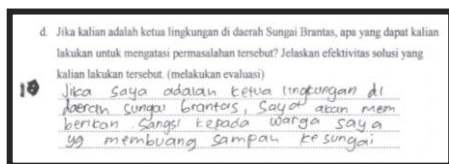 d. Jika kalian adalah ketua lingkungan di daerah Sungai Brantas, apa yang dapat kalian
lakukan untuk mengatasi permasalahan tersebut? Jelaskan efektivitas solusi yang
kalian lakukan tersebut. (melakukan evaluasi)
Jika saya adalah ketua lingkungan di
daerah sungai brantas, saya akan mem
berikan sangsi kepada warga saya
yg membuang sampah ke sungai